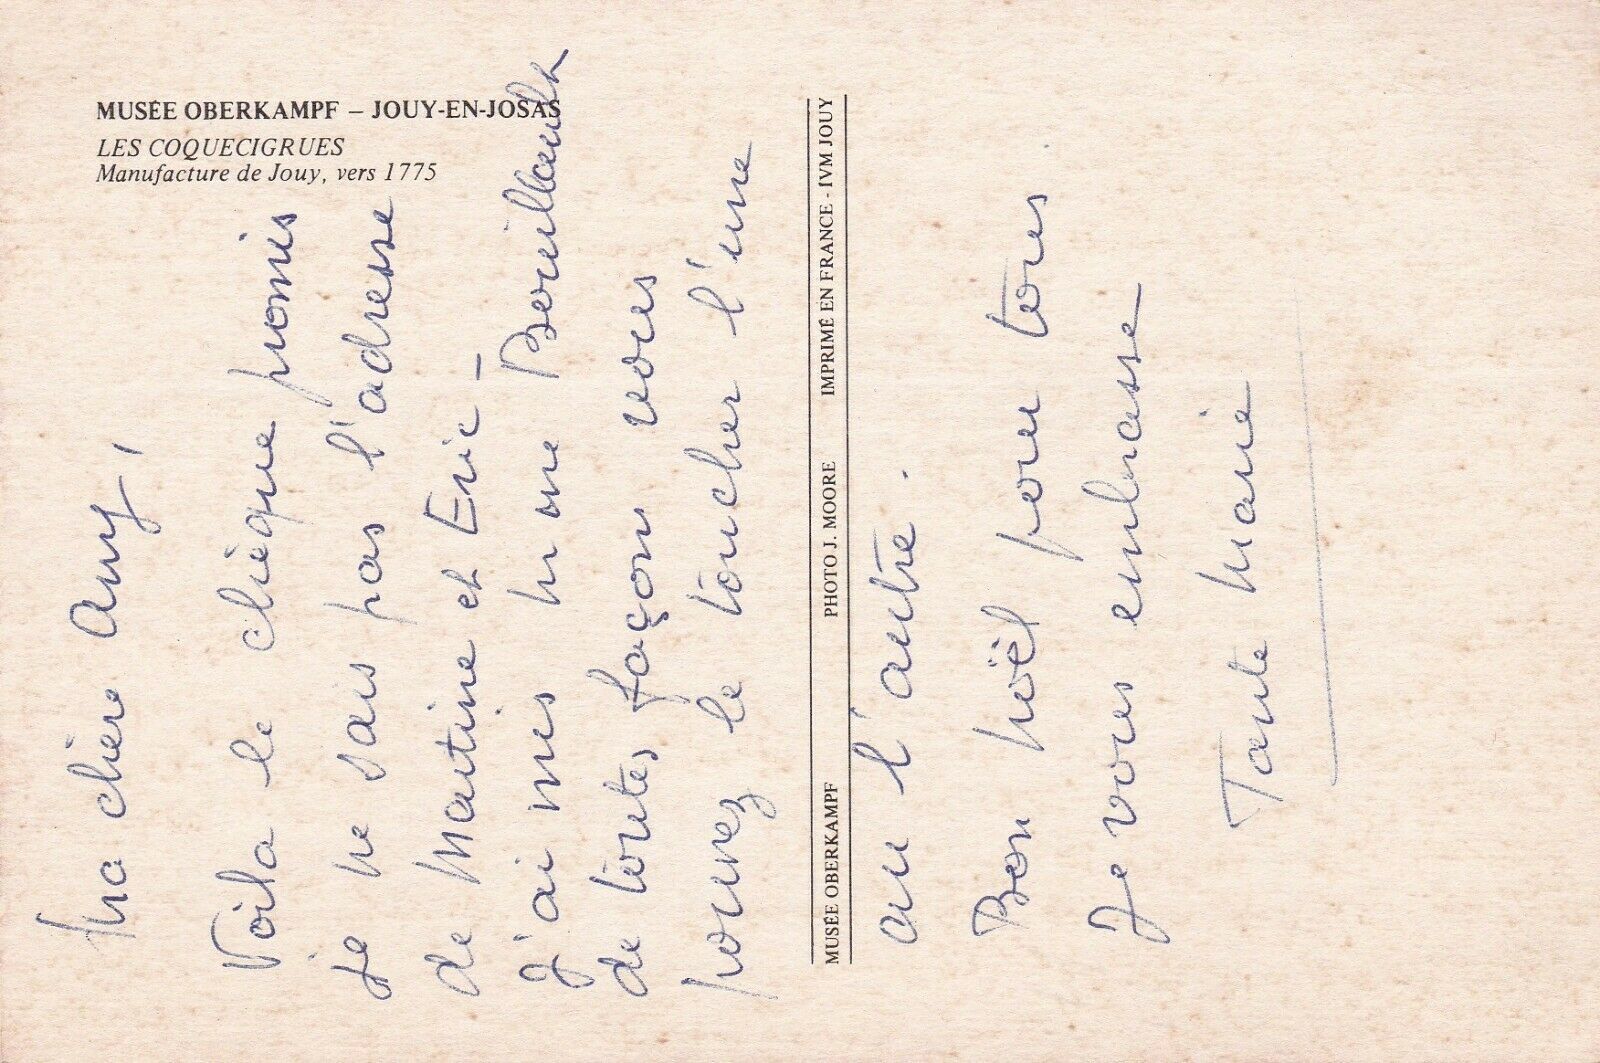 MUSÉE OBERKAMPF – JOUY-EN-JOSAS
LES COQUECIGRUES
Manufacture de Jouy, vers 1775
MUSÉE OBERKAMPF PHOTO J. MOORE IMPRIMÉ EN FRANCE - IVM JOUY
Ma chère Any,
Voila le chèque promis
je ne sais pas l'adresse
de Martine et Eric –
J'ai mis Mme Bouillault
de toutes façon vous
pouvez le toucher l'une
ou l'autre.
Bon Noël pour tous
Je vous embrasse
Tante Marie